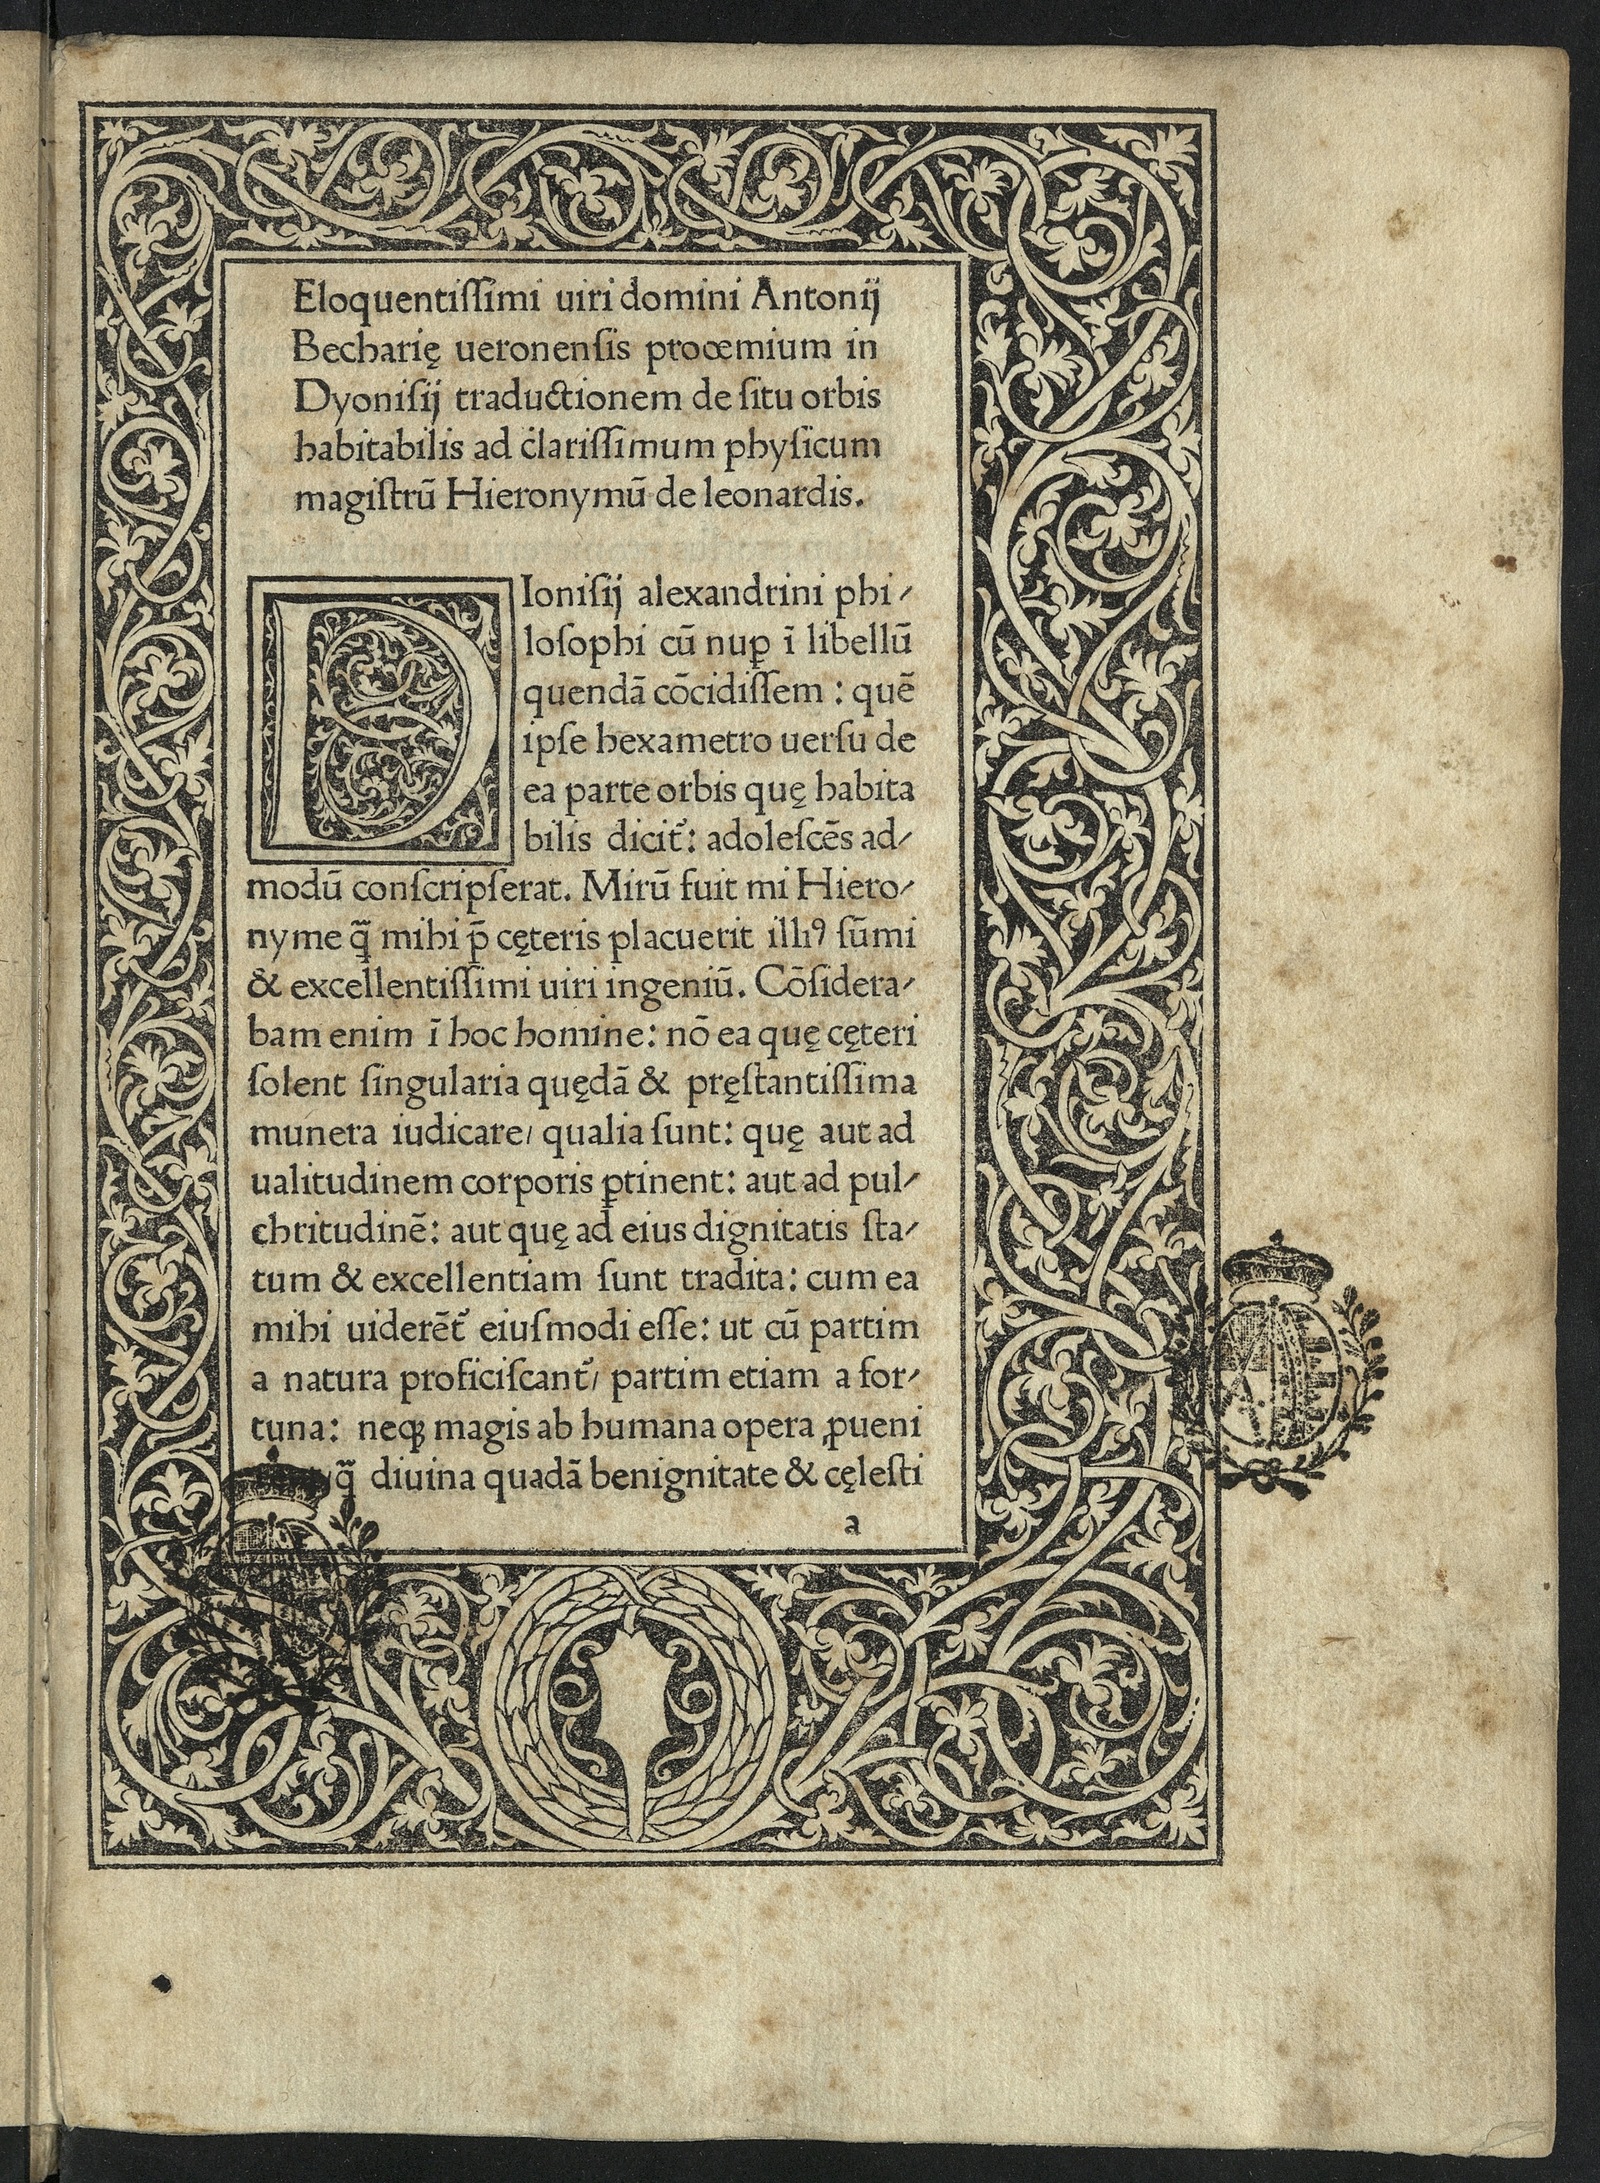 Eloquentiſſimi uiri domini Antonij
Becharię ueronenſis prooemium in
Dyoniſij traductionem de ſitu orbis
habitabilis ad clariſſimum phyſicum
magiſtrū Hieronymū de leonardis.
DIoniſij alexandrini phi⸗
loſophi cū nuꝑ ī libellū
quendā cōcidiſſem : quē
ipſe hexametro uerſu de
ea parte orbis quę habita
bilis dicit᷑: adoleſcēs ad⸗
modū conſcripſerat. Mirū fuit mi Hiero⸗
nyme q̄ mihi p̄ cęteris placuerit illiꝰ ſūmi
& excellentiſſimi uiri ingeniū. Cōſidera⸗
bam enim ī hoc homine: nō ea quę cęteri
ſolent ſingularia quędā & pręſtantiſſima
munera iudicare/ qualia ſunt: quę aut ad
ualitudinem corporis ꝑtinent: aut ad pul⸗
chritudinē: aut quę ad eius dignitatis ſta⸗
tum & excellentiam ſunt tradita: cum ea
mihi uiderēt᷑ eiuſmodi eſſe: ut cū partim
a natura proficiſcant᷑/ partim etiam a for⸗
tuna: neqꝫ magis ab humana opera ꝓueni
q̄ diuina quadā benignitate & cęleſti
a